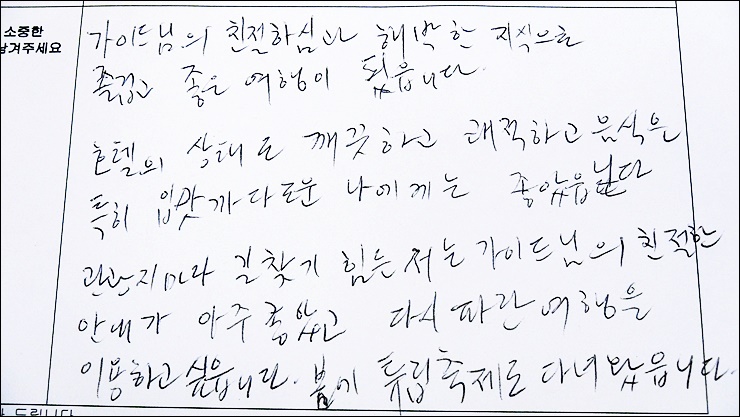 소중한
남겨주세요
가이드님의 친절하심과 해박한 지식으로
즐겁고 좋은 여행이 됬읍니다.
호텔의 상태도 깨끗하고 쾌적하고 음식은
특히 입맛까다로운 나에게는 좋았읍니다
관관지마라 길찾기 힘든 저는 가이드님의 친절한
안내가 아주 좋았고 다시 파란여행을
이용하고 싶읍니다. 봄에 튤립축제도 다녀왔읍니다.
드립니다